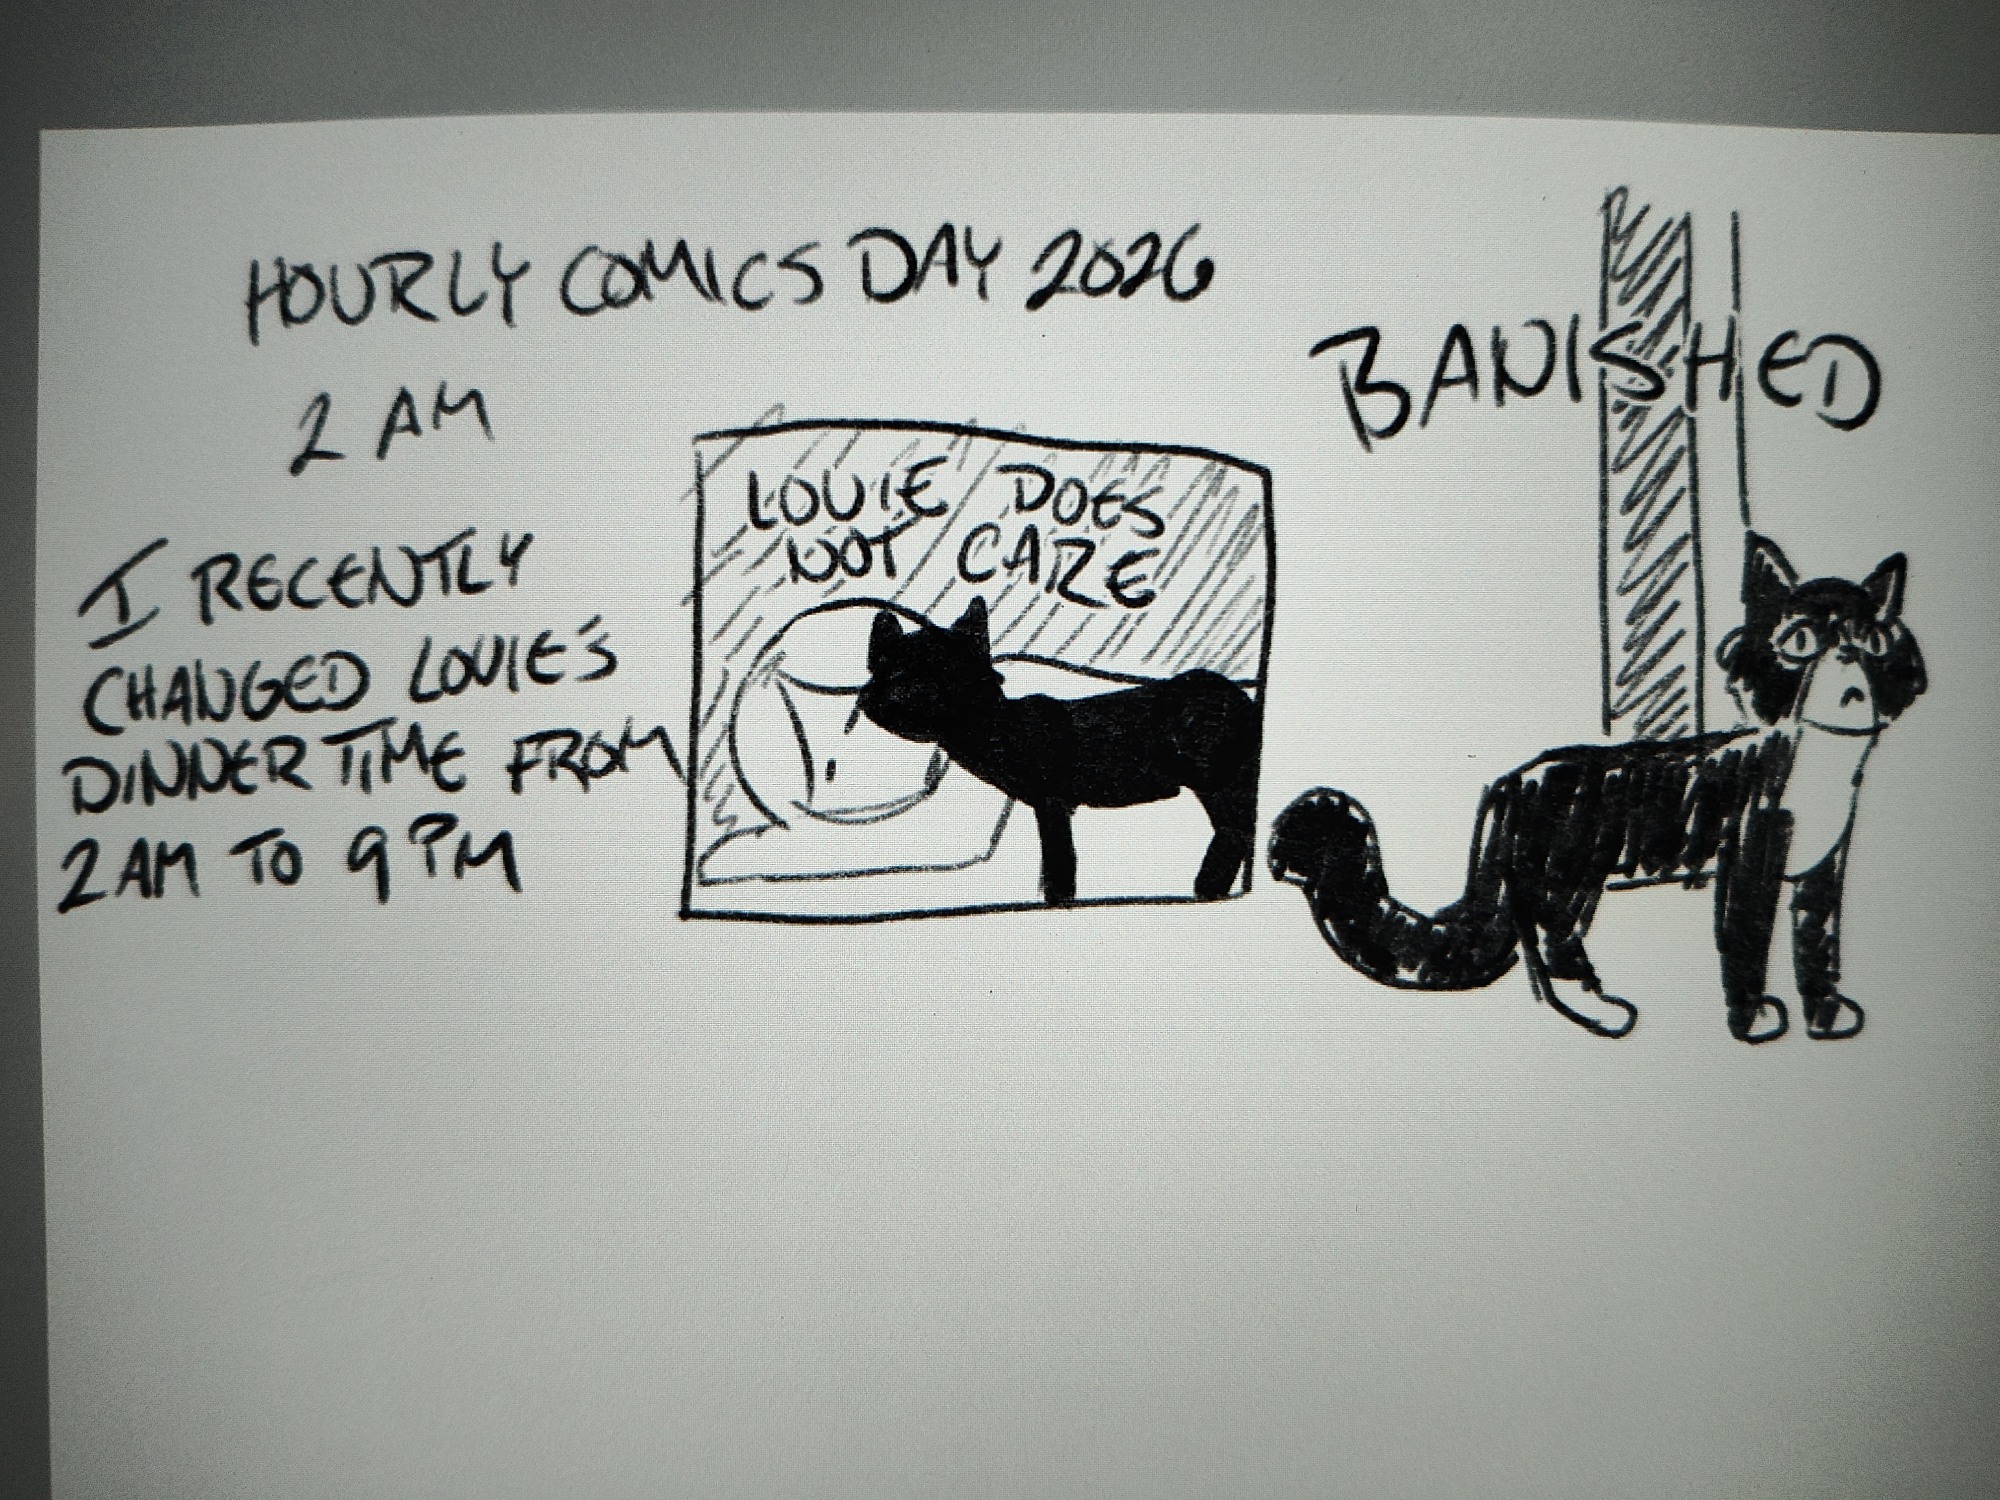 HOURLY COMICS DAY 2026
2 AM
I RECENTLY
CHANGED LOUIE'S
DINNER TIME FROM
2 AM TO 9 PM
LOUIE DOES
NOT CARE
BANISHED